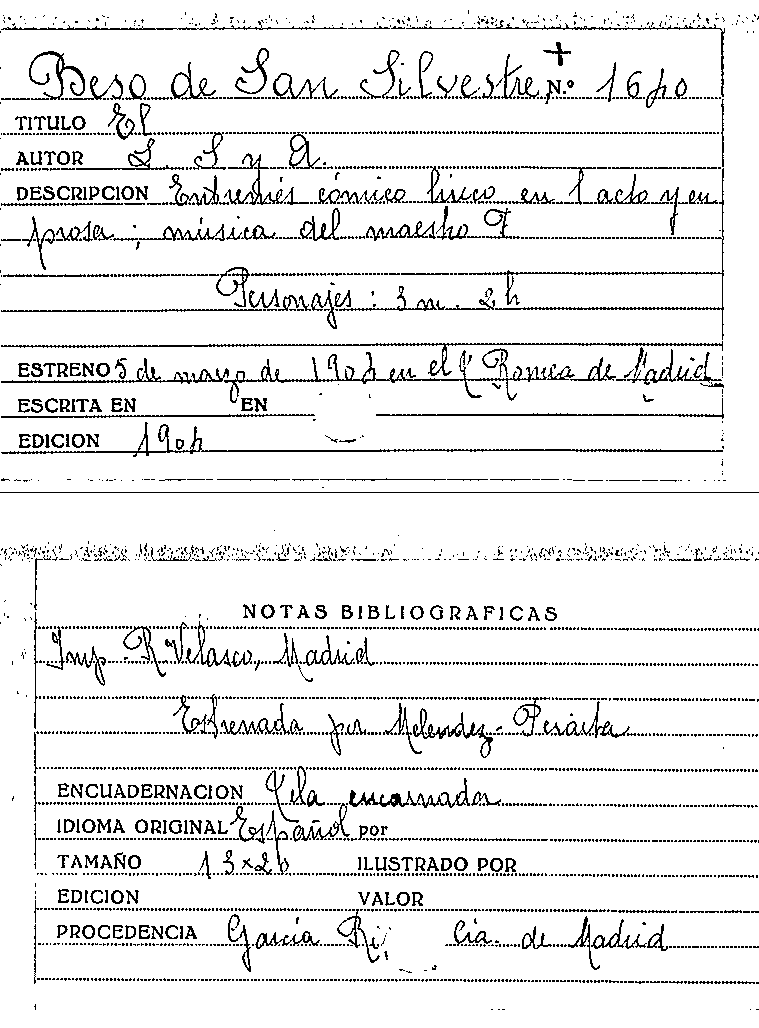 Beso de San Silvestre, N.º
TITULO El
AUTOR S. S y A.
DESCRIPCION Entremés cómico lírico en 1 acto y en
prosa ; música del maestro
Personajes : 3 m. 2 h
ESTRENO 5 de marzo de en el Romea de Madrid
ESCRITA EN EN
EDICION
NOTAS BIBLIOGRAFICAS
Imp. R. Velasco, Madrid
Estrenada por Melendez-
ENCUADERNACION Tela encarnada
IDIOMA ORIGINAL Español por
TAMAÑO 13×20 ILUSTRADO POR
EDICION VALOR
PROCEDENCIA García Cia. de Madrid